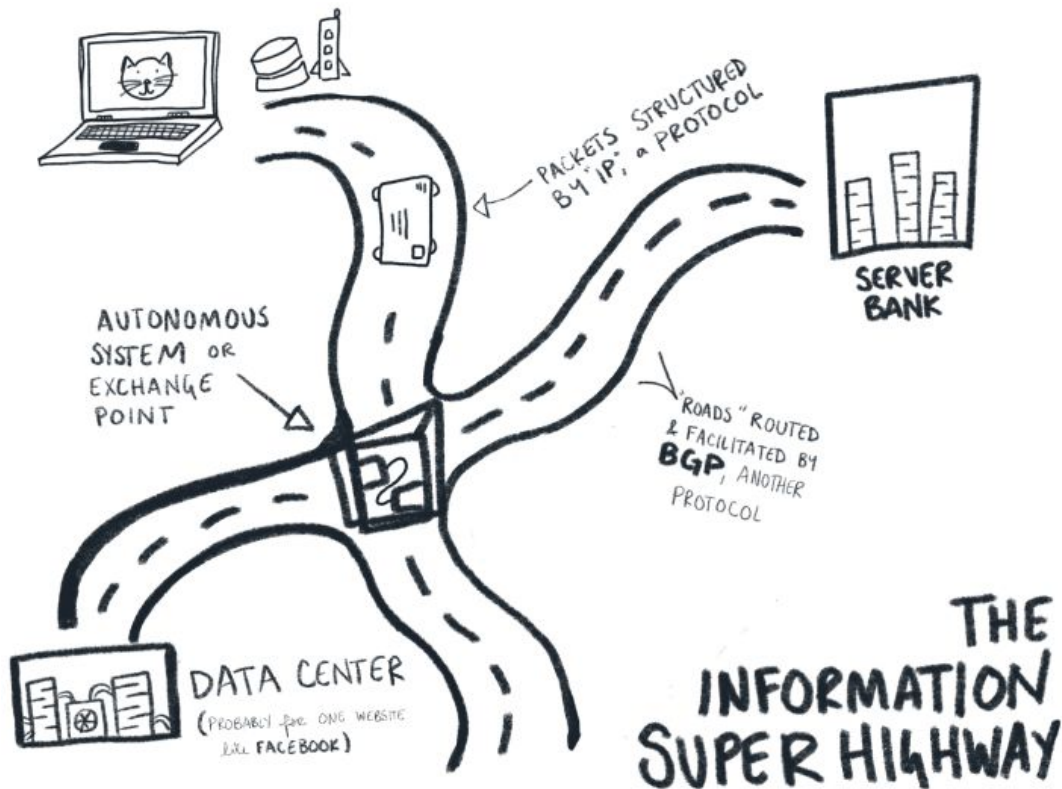 PACKETS STRUCTURED
BY "IP", a PROTOCOL
SERVER
BANK
AUTONOMOUS
SYSTEM OR
EXCHANGE
POINT
"ROADS" ROUTED
& FACILITATED BY
BGP, ANOTHER
PROTOCOL
DATA CENTER
(PROBABLY for ONE WEBSITE
like FACEBOOK)
THE
INFORMATION
SUPER HIGHWAY